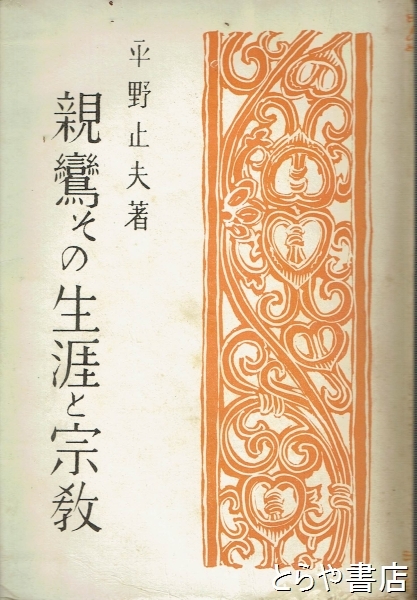 平野止夫著
親鸞その生涯と宗教
とらや書店